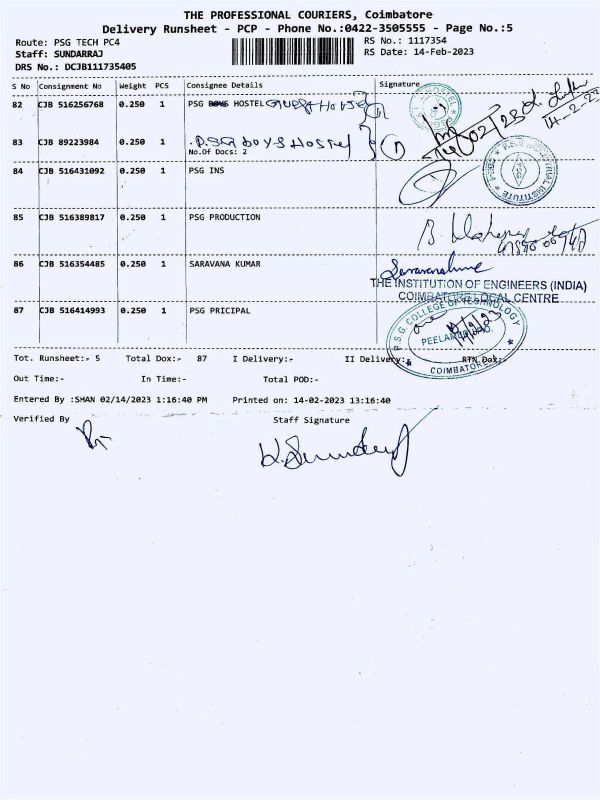 THE PROFESSIONAL COURIERS, Coimbatore
Delivery Runsheet - PCP - Phone No.:0422-3505555 - Page No.:5
Route: PSG TECH PC4
RS No.: 1117354
Staff: SUNDARRAJ
RS Date: 14-Feb-2023
DRS No.: DCJB111735405
S No Consignment No Weight PCS Consignee Details Signature
82 CJB 516256768 0.250 1 PSG BOYS HOSTEL Guest House
83 CJB 89223984 0.250 1 .P.SG boys Hostel
No.Of Docs: 2
84 CJB 516431092 0.250 1 PSG INS
85 CJB 516389817 0.250 1 PSG PRODUCTION
86 CJB 516354485 0.250 1 SARAVANA KUMAR
THE INSTITUTION OF ENGINEERS (INDIA)
COIMBATORE LOCAL CENTRE
87 CJB 516414993 0.250 1 PSG PRICIPAL
P.S.G. COLLEGE OF TECHNOLOGY
COIMBATORE
Tot. Runsheet:- 5 Total Dox:- 87 I Delivery:- II Delivery:- RTN Dox:-
Out Time:- In Time:- Total POD:-
Entered By :SHAN 02/14/2023 1:16:40 PM Printed on: 14-02-2023 13:16:40
Verified By Staff Signature